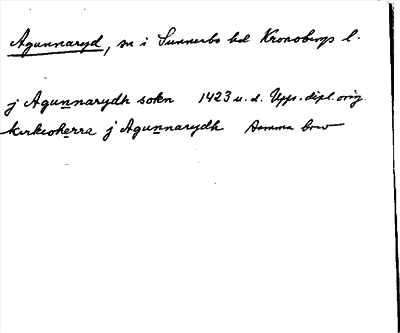 Agunnaryd, sn i Sunnerbo hd Kronobergs l.
j Agunnarydh sokn 1423 u. d. Upps. dipl. orig.
kirkioherra j Agunnarydh samma brev